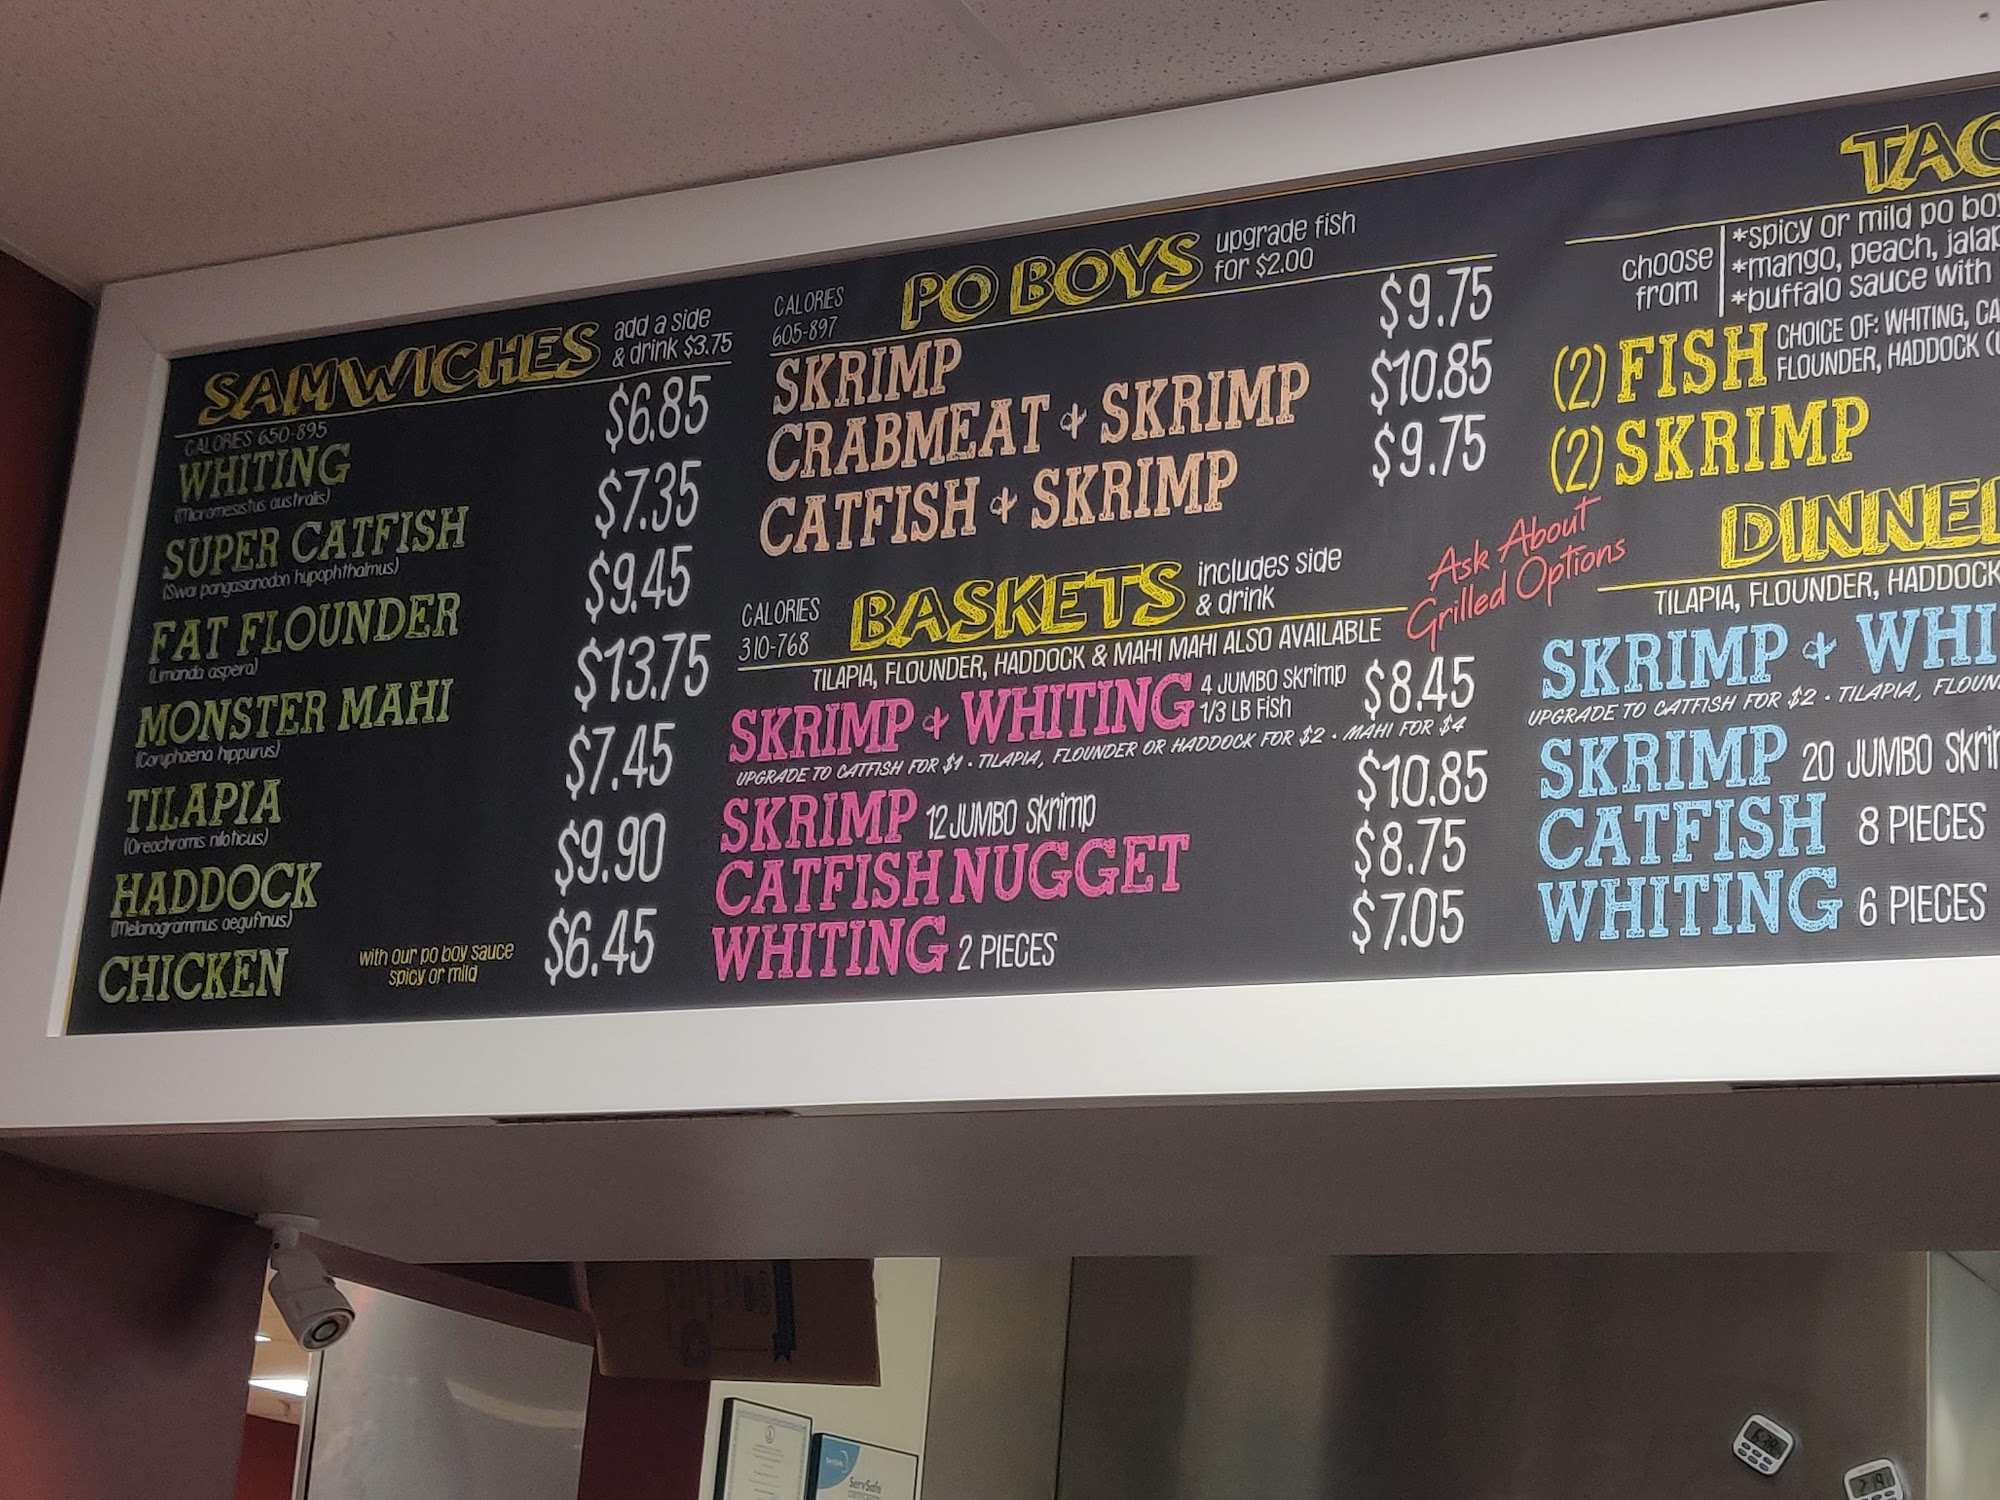 SAMWICHES add a side
& drink $3.75
CALORIES 650-895
WHITING $6.85
(Micromesistus australis)
SUPER CATFISH $7.35
(Swai pangasianodon hypophthalmus)
FAT FLOUNDER $9.45
(Limanda aspera)
MONSTER MAHI $13.75
(Coryphaena hippurus)
TILAPIA $7.45
(Oreochromis niloticus)
HADDOCK $9.90
(Melanogrammus aegufinus)
CHICKEN with our po boy sauce $6.45
spicy or mild
CALORIES
605-897
PO BOYS upgrade fish
for $2.00
SKRIMP $9.75
CRABMEAT & SKRIMP $10.85
CATFISH & SKRIMP $9.75
CALORIES
310-768
BASKETS includes side
& drink
TILAPIA, FLOUNDER, HADDOCK & MAHI MAHI ALSO AVAILABLE
SKRIMP & WHITING 4 JUMBO Skrimp $8.45
1/3 LB Fish
UPGRADE TO CATFISH FOR $1 · TILAPIA, FLOUNDER OR HADDOCK FOR $2 · MAHI FOR $4
SKRIMP 12 JUMBO Skrimp $10.85
CATFISH NUGGET $8.75
WHITING 2 PIECES $7.05
Ask About
Grilled Options
TAC
choose
from
*spicy or mild po boy
*mango, peach, jalap
*buffalo sauce with
(2) FISH CHOICE OF: WHITING, CA
FLOUNDER, HADDOCK (
(2) SKRIMP
DINNE
TILAPIA, FLOUNDER, HADDOCK
SKRIMP & WHI
UPGRADE TO CATFISH FOR $2 · TILAPIA, FLOUN
SKRIMP 20 JUMBO Skrim
CATFISH 8 PIECES
WHITING 6 PIECES
ServSafe